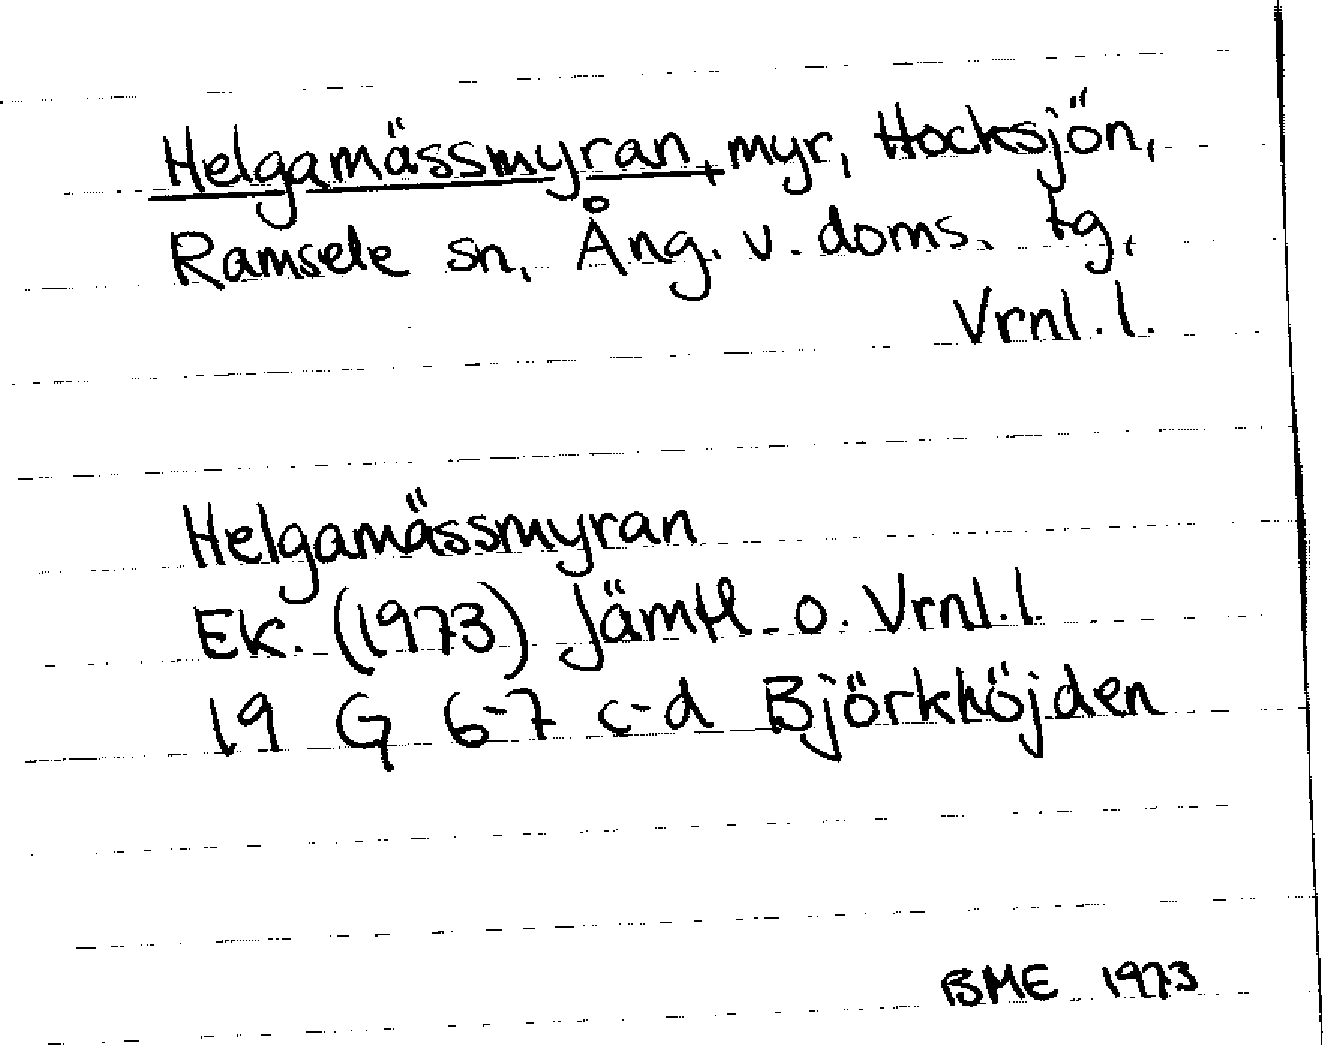 Helgamässmyran, myr, Hocksjön,
Ramsele sn, Ång. v. doms. tg,
Vrnl. l.
Helgamässmyran
Ek. (1973) Jämtl. o. Vrnl. l.
19 G 6-7 c-d Björkhöjden
BME 1973